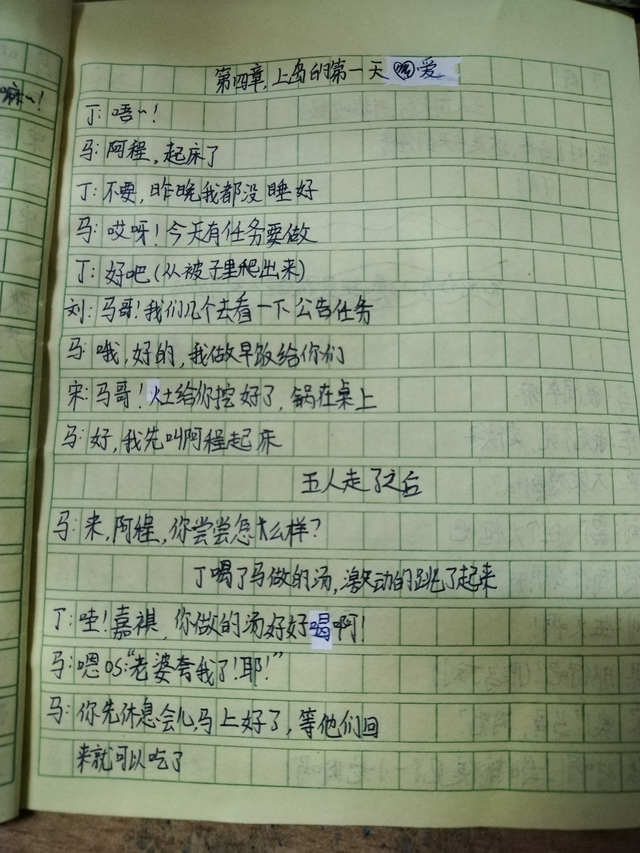 嘛~!
第四章,上岛的第一天 爱
丁:唔~!
马:阿程,起床了
丁:不要,昨晚我都没睡好
马:哎呀!今天有任务要做
丁:好吧(从被子里爬出来)
刘:马哥!我们几个去看一下公告任务
马:哦,好的,我做早饭给你们
宋:马哥!灶给你挖好了,锅在桌上
马:好,我先叫阿程起床
五人走了之后
马:来,阿程,你尝尝怎么样?
丁喝了马做的汤,激动的跳了起来
丁:哇!嘉祺,你做的汤好好喝啊!
马:嗯OS:“老婆夸我了!耶!”
马:你先休息会儿,马上好了,等他们回
来就可以吃了